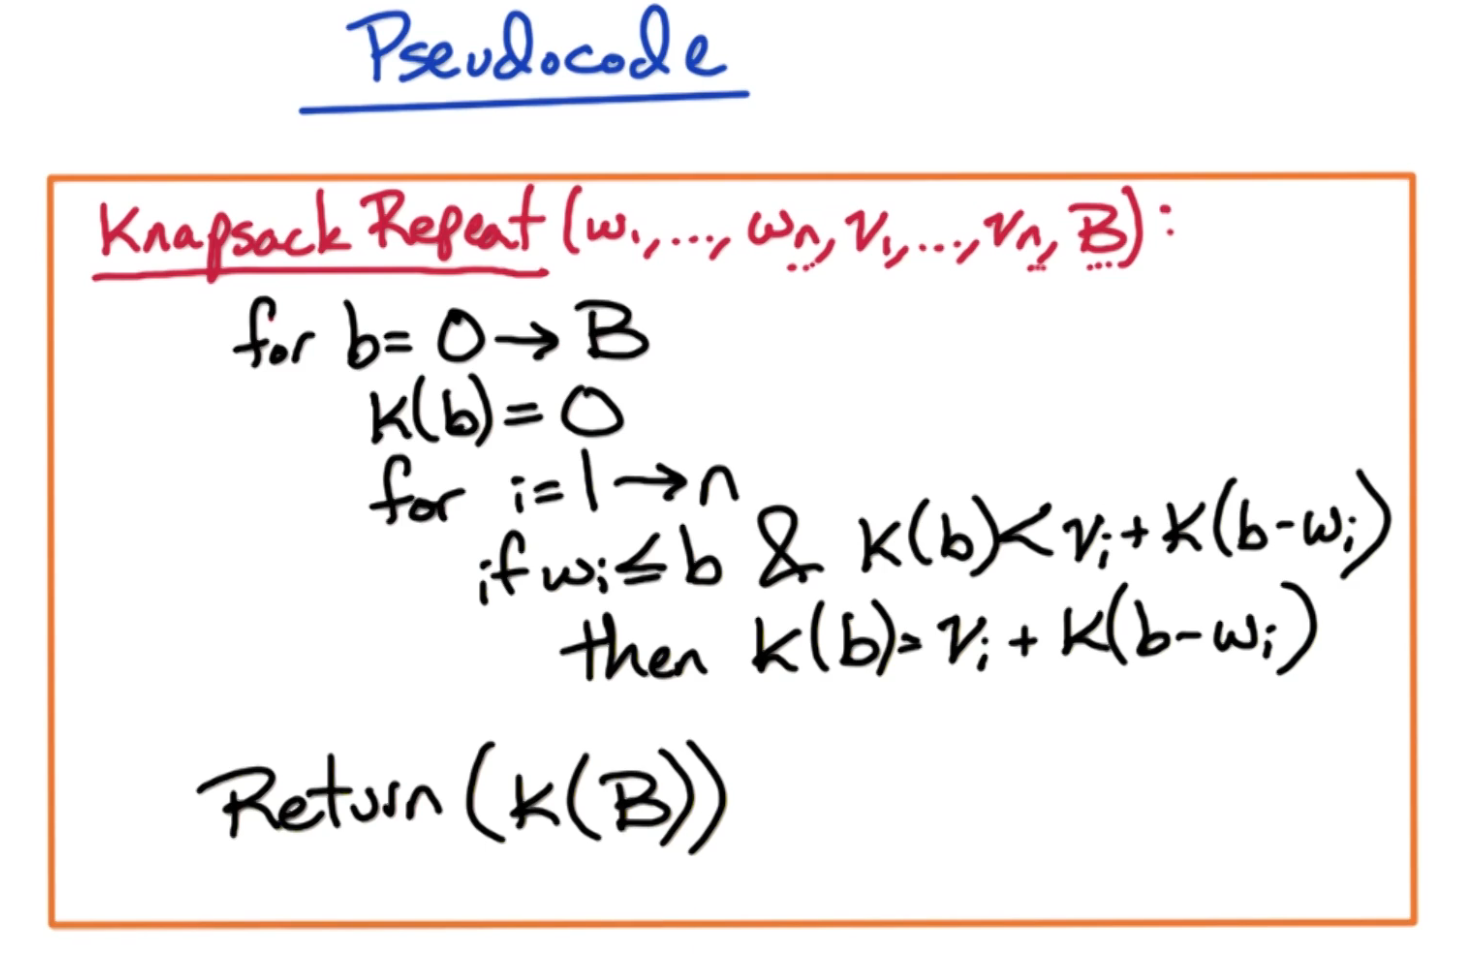 Pseudocode
Knapsack Repeat (w₁, ..., wₙ, v₁, ..., vₙ, B):
for b = 0 → B
K(b) = 0
for i = 1 → n
if wᵢ ≤ b & K(b) < vᵢ + K(b - wᵢ)
then K(b) = vᵢ + K(b - wᵢ)
Return (K(B))